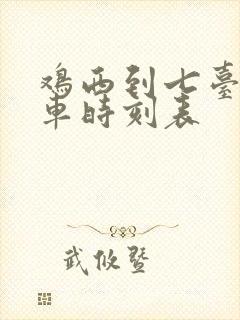 鸡西到七臺
車時刻表
武攸暨